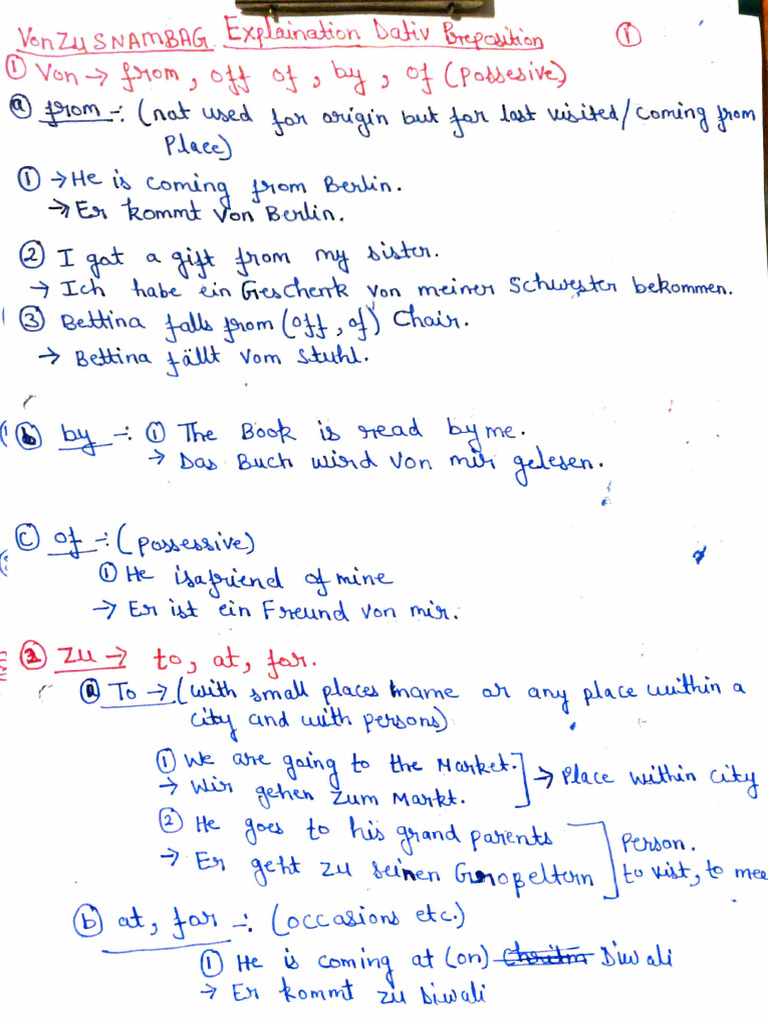 VonZuSNAMBAG Explaination Dativ Preposition ①
① Von → from, off of, by, of (possesive)
ⓐ from -: (not used for origin but for last visited/coming from
Place)
① → He is coming from Berlin.
→ Er kommt von Berlin.
② I got a gift from my sister.
→ Ich habe ein Geschenk von meiner Schwester bekommen.
③ Bettina falls from (off, of) Chair.
→ Bettina fällt vom Stuhl.
ⓑ by -: ① The Book is read by me.
→ Das Buch wird von mir gelesen.
ⓒ of -: (possessive)
① He is a friend of mine
→ Er ist ein Freund von mir.
② Zu → to, at, for.
ⓐ To → (with small places name or any place within a
city and with persons)
① We are going to the Market. → Place within city
→ Wir gehen zum Markt.
② He goes to his grand parents Person.
→ Er geht zu seinen Großeltern to vist, to mee
ⓑ at, for -: (occasions etc.)
① He is coming at (on) Diwali
→ Er kommt zu Diwali